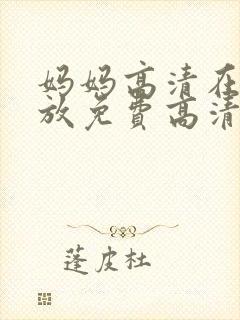 妈妈高清在
放免费高清
蓬皮杜